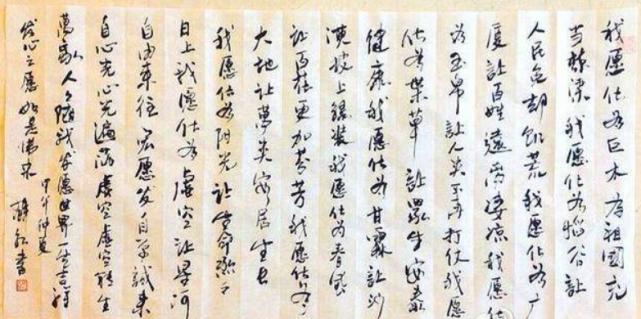 我愿化为巨木为祖国充
当栋梁我愿化为稻谷让
人民免却饥荒我愿化为广
厦让百姓远离凄凉我愿化
为玉帛让人类不再打仗我愿
化为药草让众生安泰
健康我愿化为甘霖让沙
漠披上绿装我愿化为春风
让百花更加芬芳我愿化为
大地让万类安居生长
我愿化为阳光让生命欣欣
向上我愿化为虚空让星河
自由来往宏愿发自至诚来
自心光心光遍满虚空虚空转生
万象人人随我发愿世界一片吉祥
发心之愿如是
甲午仲夏
书